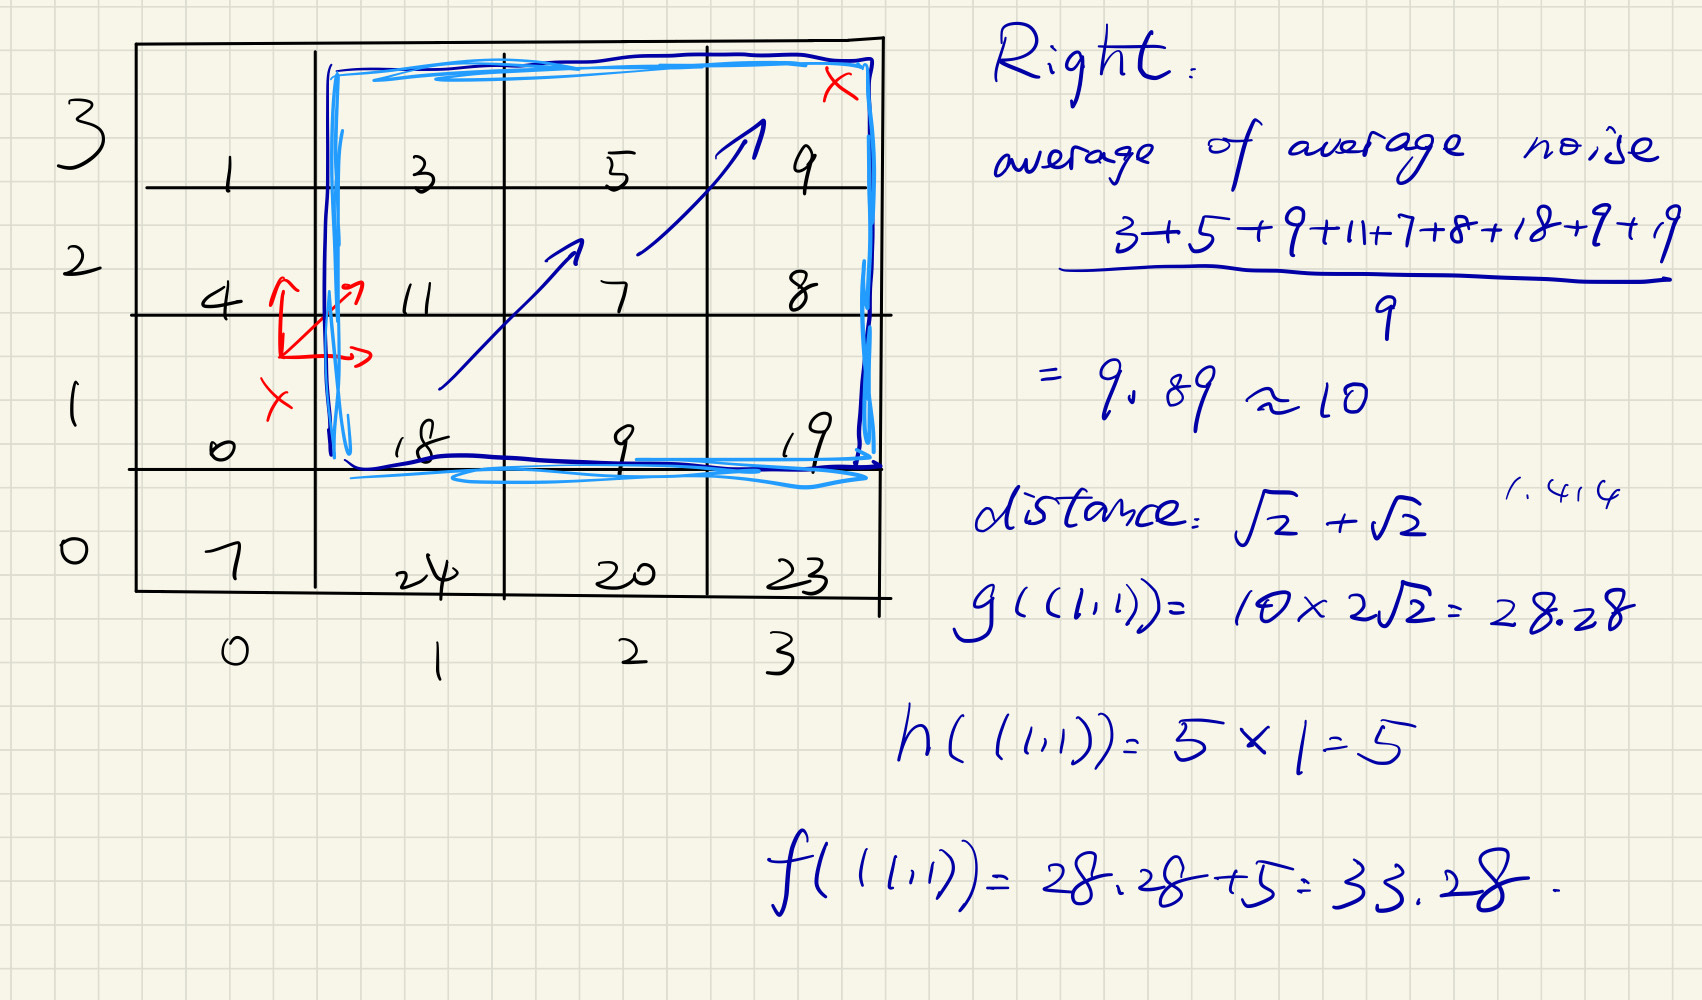 3 1 3 5 9
2 4 11 7 8
1 0 18 9 19
0 7 24 20 23
0 1 2 3
Right:
average of average noise
3+5+9+11+7+8+18+9+19
9
= 9.89 ≈ 10
distance: √2 + √2 1.414
g((1,1)) = 10 × 2√2 = 28.28
h((1,1)) = 5 × 1 = 5
f((1,1)) = 28.28+5 = 33.28.